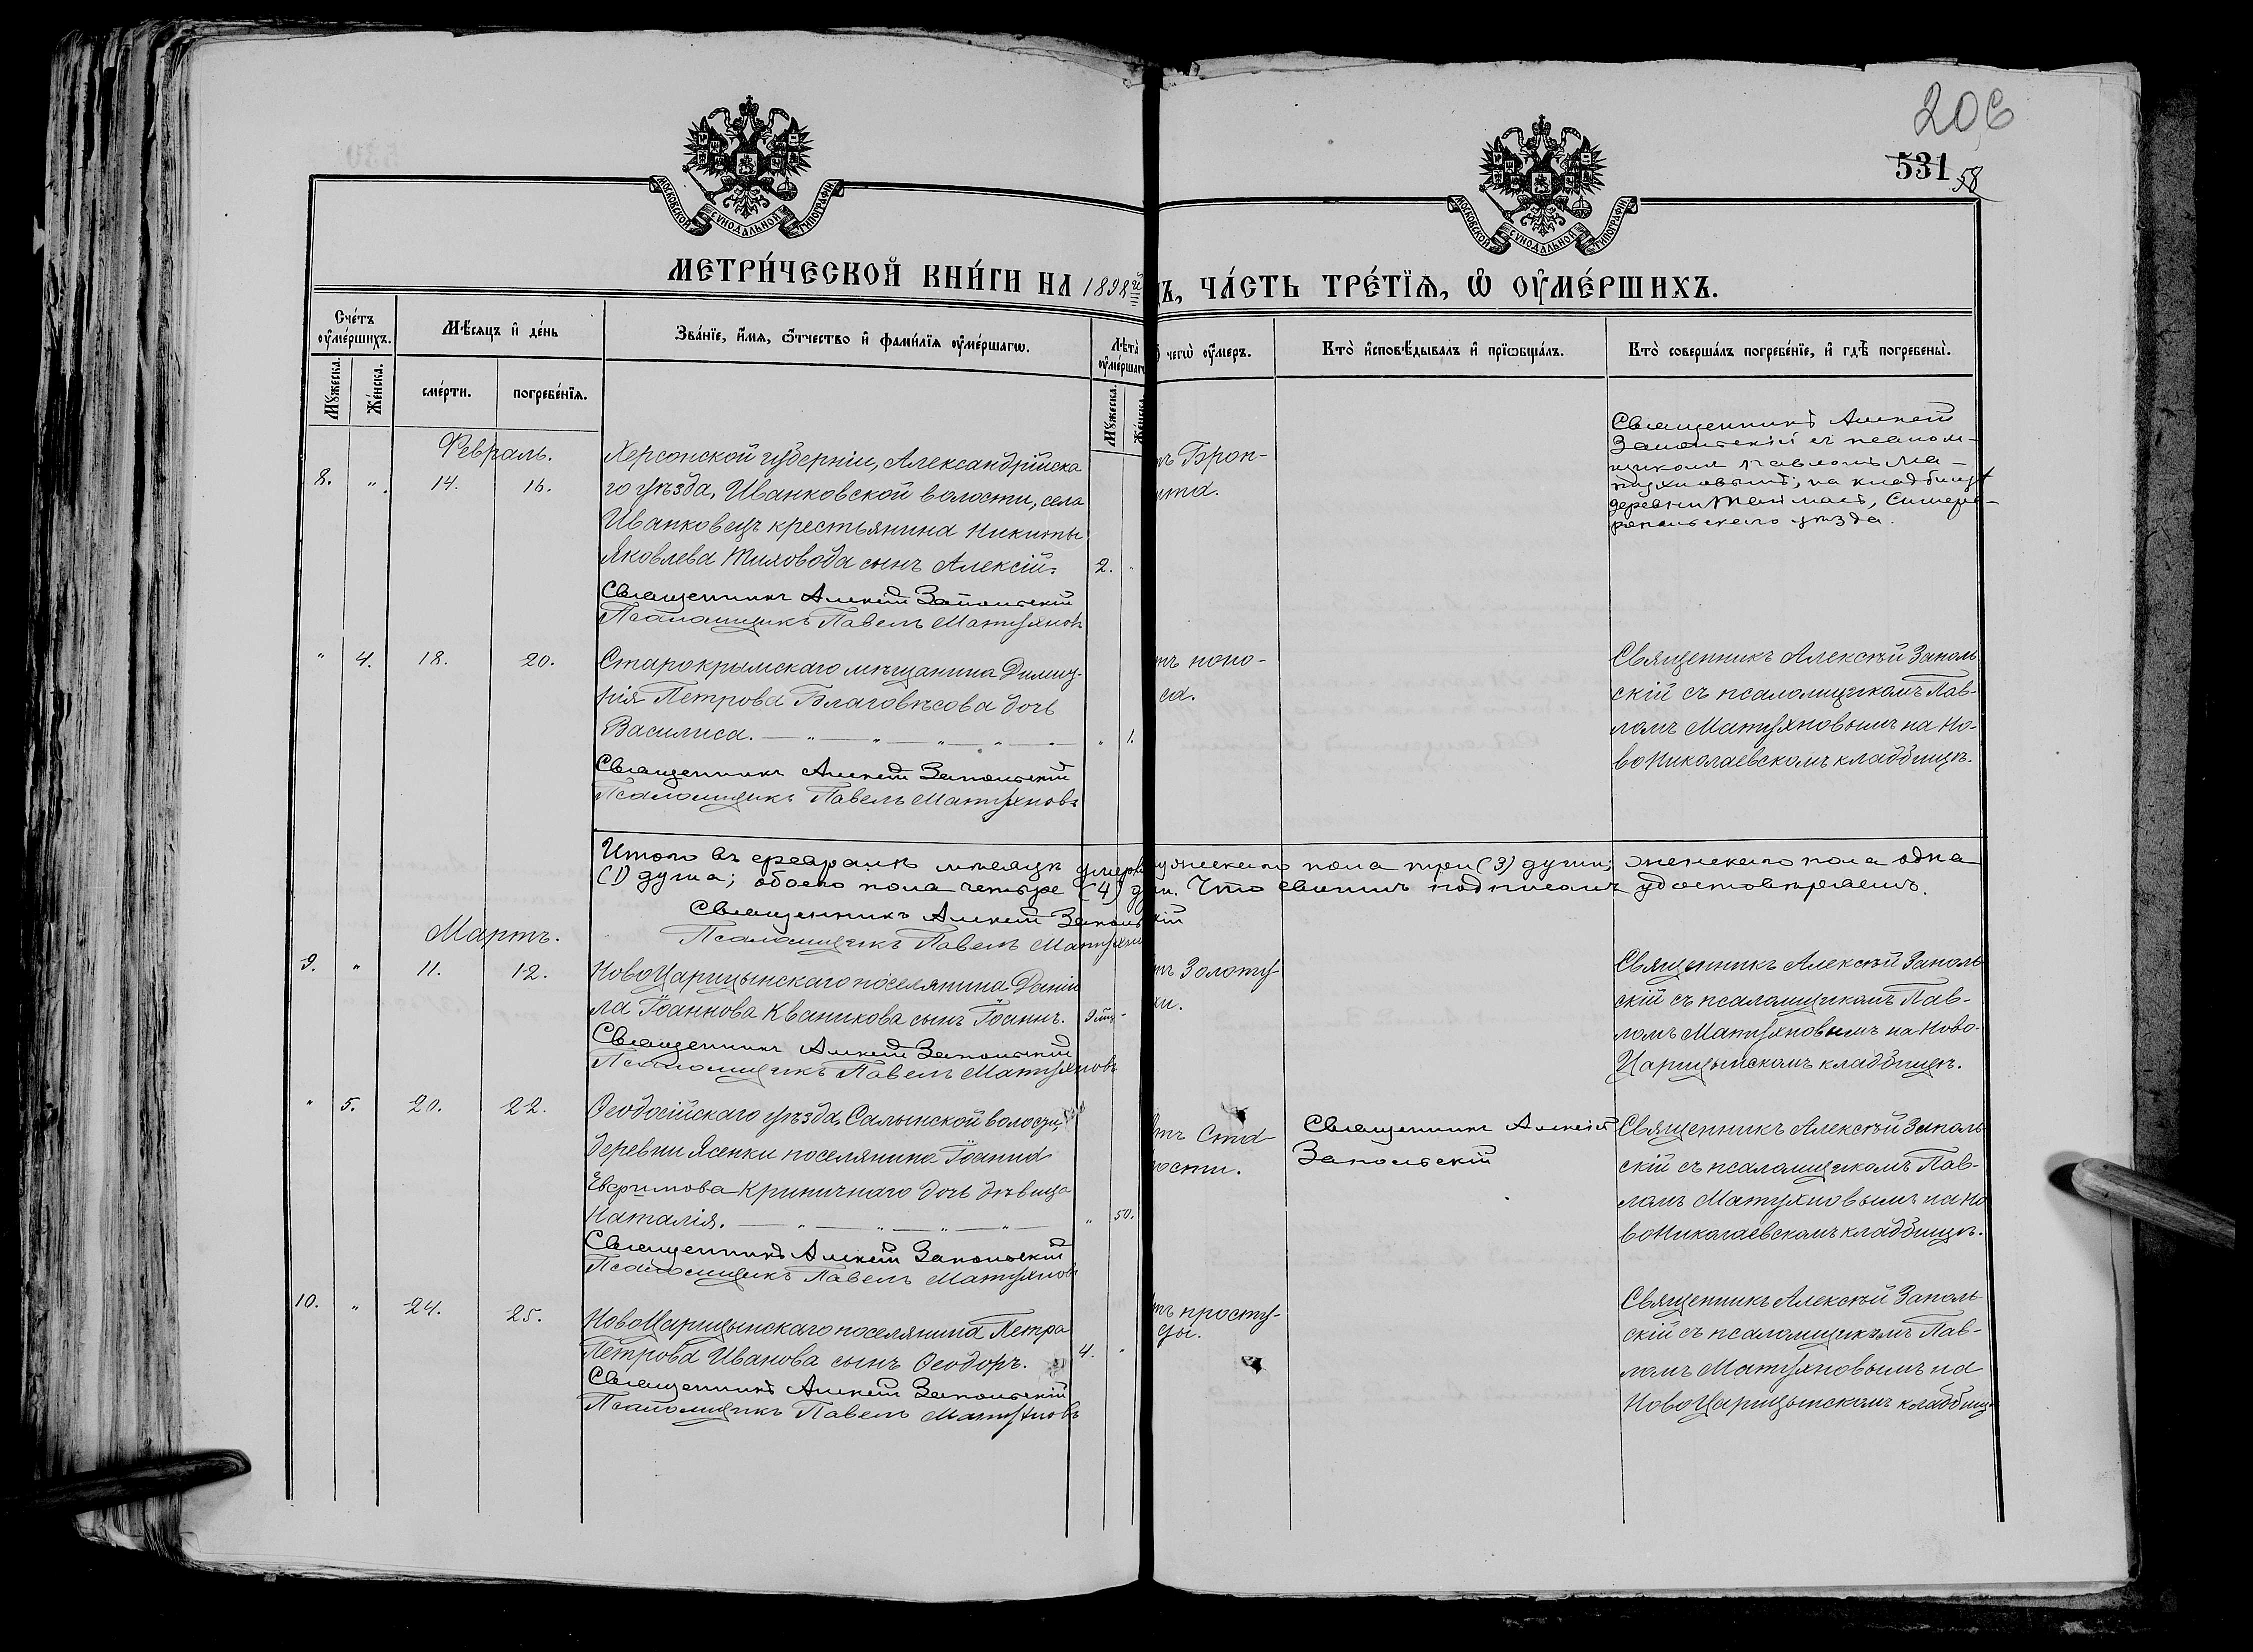 206
531 58
МОСКОВСКОЙ СѴНОДАЛЬНОЙ ТИПОГРАФІИ
МОСКОВСКОЙ СѴНОДАЛЬНОЙ ТИПОГРАФІИ
МЕТРИ́ЧЕСКОЙ КНИ́ГИ НА 1898й
Ъ, ЧА́СТЬ ТРЕ́ТЇѦ, Ѡ ОУМЕ́РШИХЪ.
Сче́тъ оумершихъ.
Мѹжеска.
Же́нска.
Мѣсяцъ и де́нь
сме́рти.
погребе́нїя.
Зва́нїе, и́мя, ѻ҆тчество и фами́лїя оумершагѡ.
Лѣта̀ оумершаг
Мѹжеска.
Женска.
чегѡ̀ оумеръ.
Кто̀ исповѣдывалъ и прїѡбща́лъ.
Кто̀ соверша́лъ погребе́нїе, и гдѣ погребены̀.
Февраль.
8. " 14. 16.
Херсонской губерніи, Александрійска
го уѣзда, Иванковской волости, села
Иванковецъ крестьянина Никиты
Яковлева Тиховода сынъ Алексій. 2. "
Священникъ Алексій Запольскій
Псаломщикъ Павелъ Матухновъ
тъ Брон-
ита.
Священникъ Алексій
Запольскій съ псалом-
щикомъ Павломъ Ма-
тухновымъ; на кладбищѣ
деревни Тотмасъ, Симферо-
польскаго уѣзда.
" 4. 18. 20.
Старокрымскаго мѣщанина Димит-
рія Петрова Благовѣсова дочь
Василиса. — " — " — " — " — " 1.
Священникъ Алексій Запольскій
Псаломщикъ Павелъ Матухновъ
тъ поно-
са.
Священникъ Алексѣй Заполь
скій съ псаломщикомъ Пав-
ломъ Матухновымъ на Но-
воНиколаевскомъ кладбищѣ.
Итого въ февралѣ мѣсяцѣ умерло мужескаго пола три (3) души; женскаго пола одна
(1) душа; обоего пола четыре (4) души. Что своимъ подписомъ удостовѣряемъ.
Священникъ Алексій Запольскій
Псаломщикъ Павелъ Матухно
Мартъ.
9. " 11. 12.
НовоЦарицынскаго поселянина Даніи
ла Іоаннова Кваникова сынъ Іоаннъ. 9 мц "
Священникъ Алексій Запольскій
Псаломщикъ Павелъ Матухновъ
тъ Золоту-
хи.
Священникъ Алексѣй Заполь
скій съ псаломщикомъ Пав-
ломъ Матухновымъ на Ново-
Царицынскомъ кладбищѣ.
" 5. 20. 22.
Ѳеодосійскаго уѣзда, Салынской волости,
деревни Ясенки поселянина Іоанна
Евфимова Криничнаго дочь дѣвица
Наталія. — " — " — " — " — " 50.
Священникъ Алексій Запольскій
Псаломщикъ Павелъ Матухновъ
тъ Ста-
рости.
Священникъ Алексій
Запольскій
Священникъ Алексѣй Заполь
скій съ псаломщикомъ Пав-
ломъ Матухновымъ на Но
воНиколаевскомъ кладбищѣ.
10. " 24. 25.
НовоЦарицынскаго поселянина Петра
Петрова Иванова сынъ Ѳеодоръ. 4. "
Священникъ Алексій Запольскій
Псаломщикъ Павелъ Матухновъ
тъ просту-
ды.
Священникъ Алексѣй Заполь
скій съ псаломщикомъ Пав-
ломъ Матухновымъ на
НовоЦарицынскомъ кладбищѣ